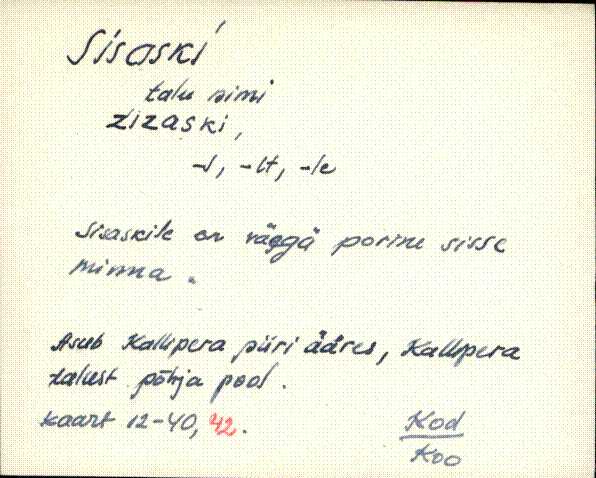 Sisaski
talu nimi
zizaski,
-l, -lt, -le
Sisaskile on väggä porine sisse
minna.
Asub Kallipera piiri ääres, Kallipera
talust põhja pool.
kaart 12-40, 42.
Kod
Koo